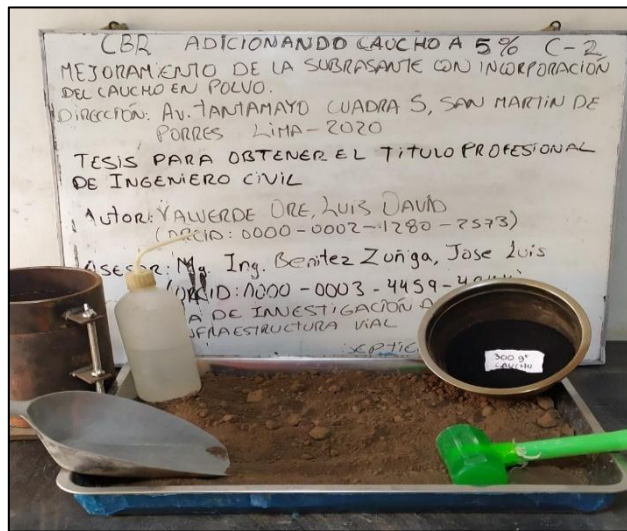 CBR ADICIONANDO CAUCHO A 5% C-2
MEJORAMIENTO DE LA SUBRASANTE CON INCORPORACIÓN
DEL CAUCHO EN POLVO.
DIRECCIÓN: AV. TANTAMAYO CUADRA 5, SAN MARTIN DE
PORRES LIMA-2020
TESIS PARA OBTENER EL TITULO PROFESIONAL
DE INGENIERO CIVIL
Autor: VALVERDE ORE, LUIS DAVID
(ORCID: 0000-0002-1280-2573)
ASESOR: Mg. Ing. Benitez Zuñiga, Jose Luis
0000-0003-4459-
DE INVESTIGACIÓN
INFRAESTRUCTURA VIAL
300 gr
CAUCHO